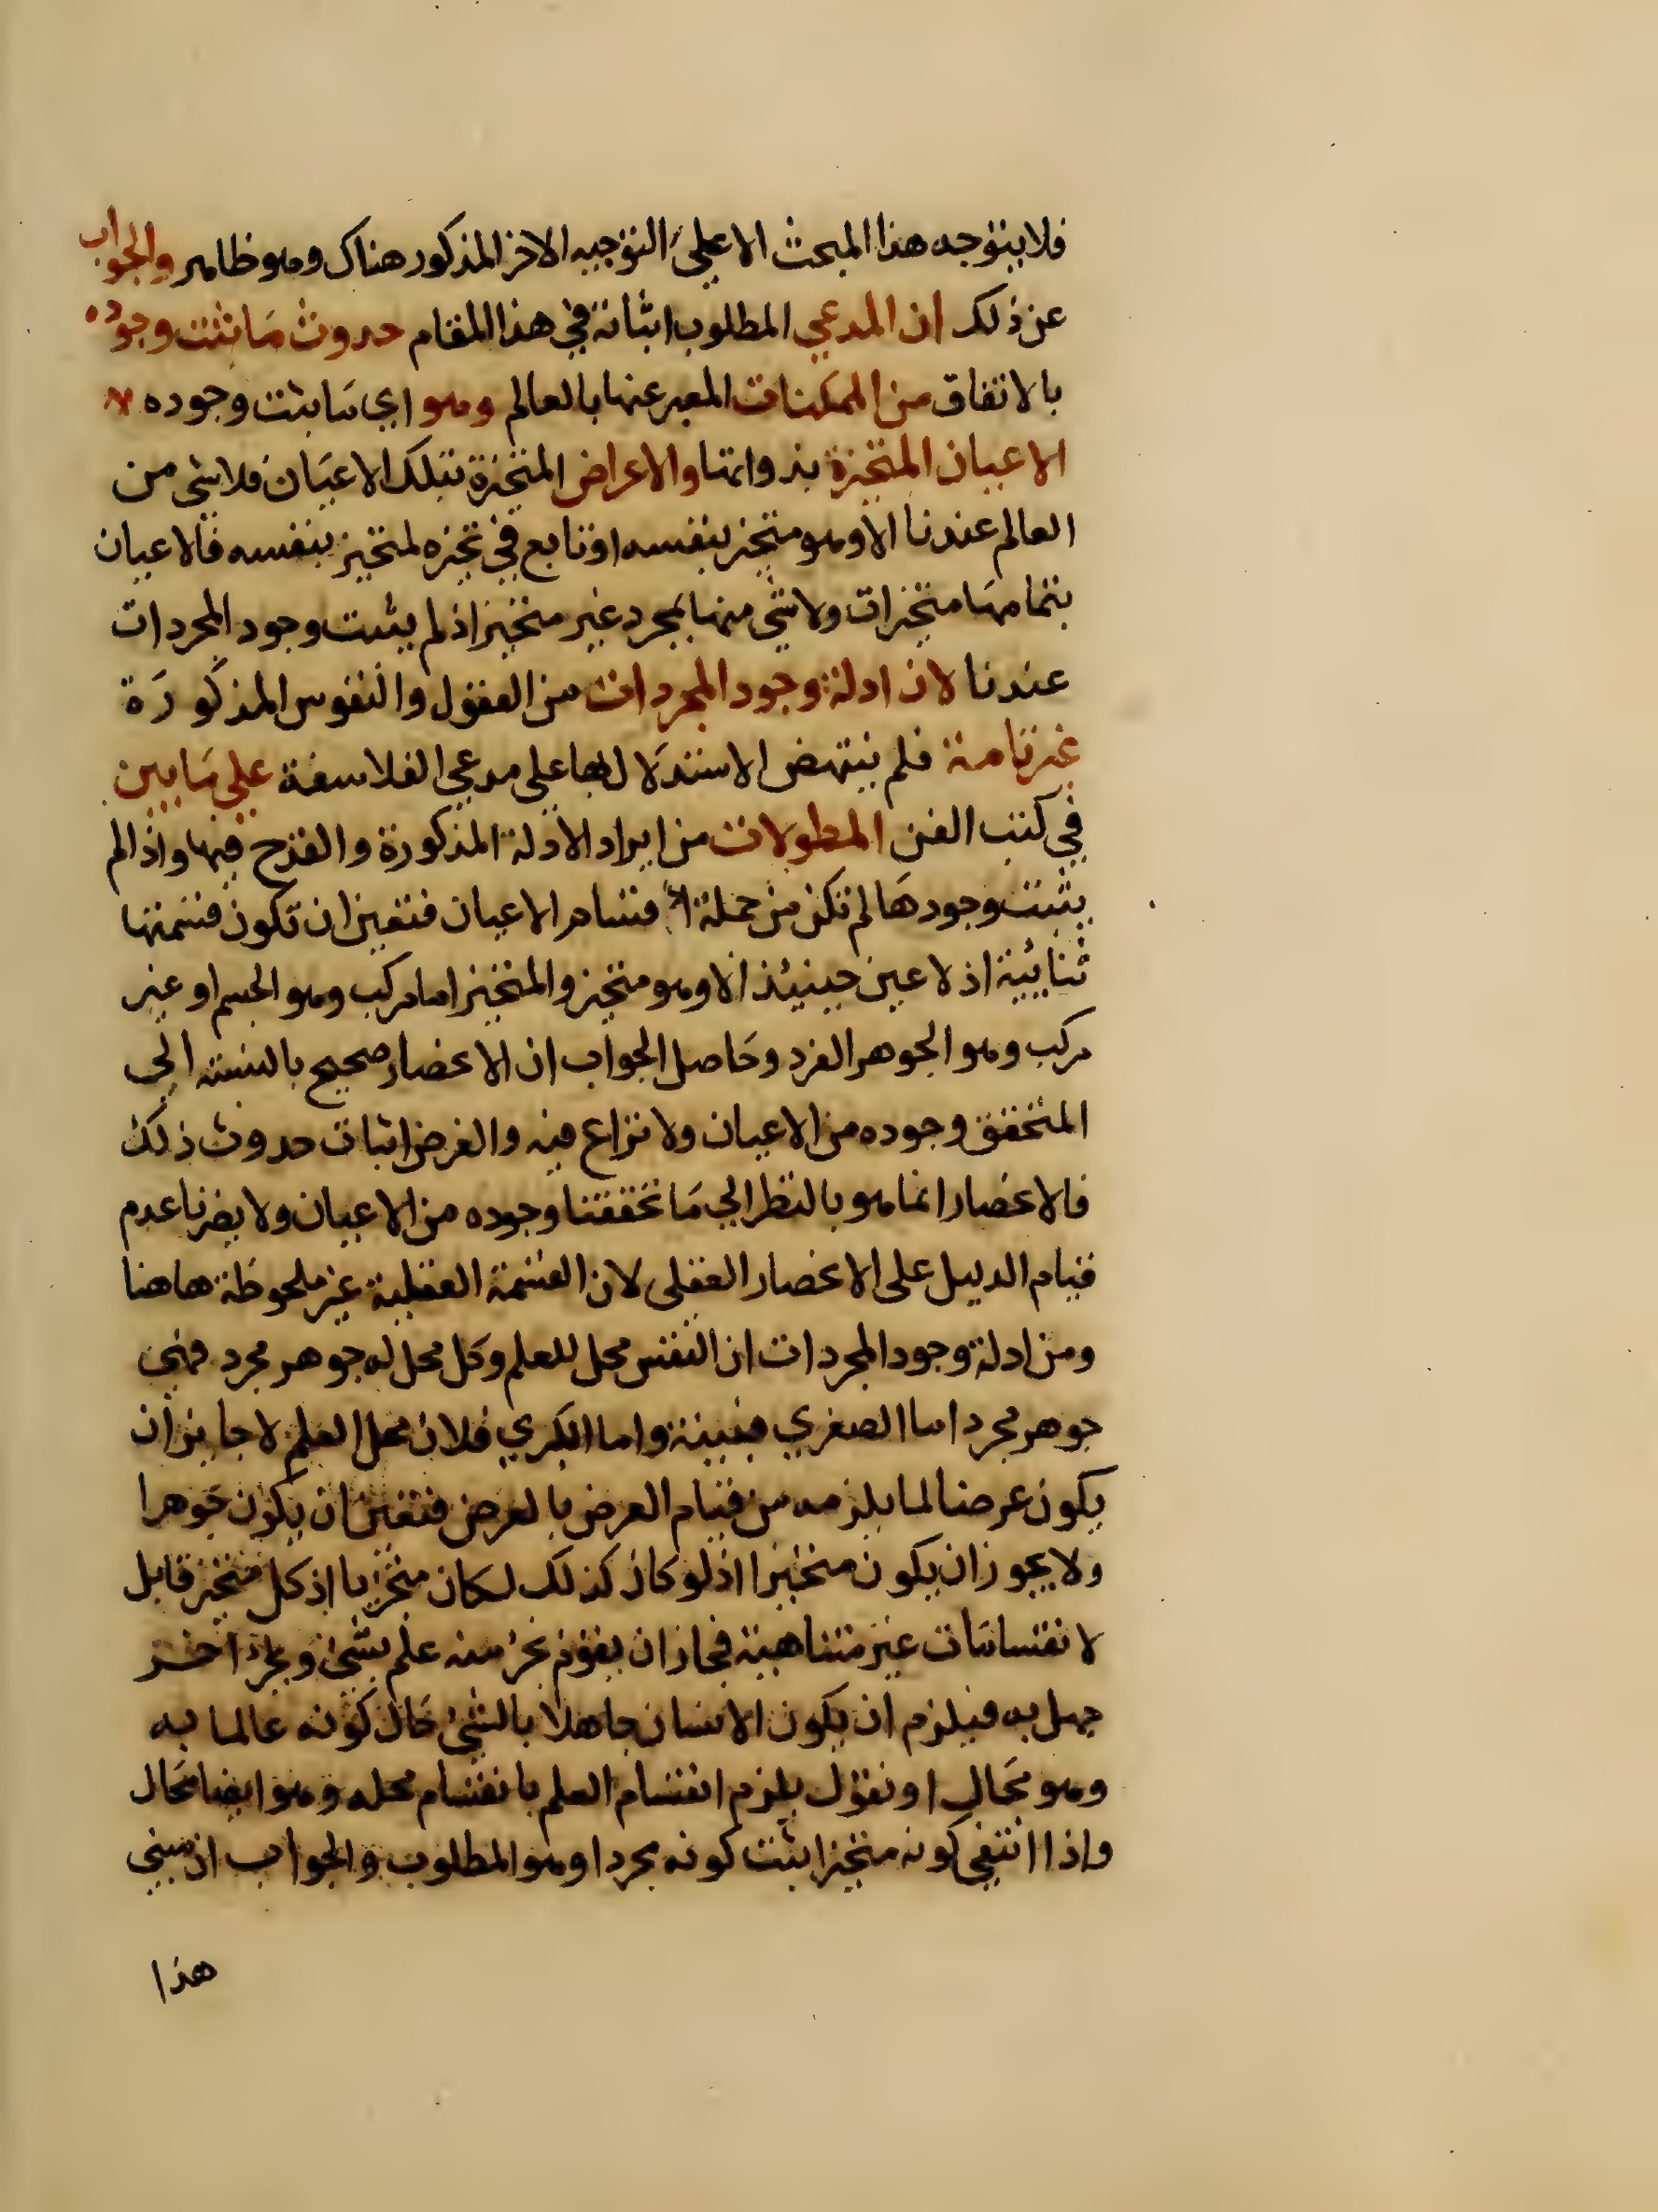 فلا يتوجه هذا المبحث الا على التوجيه الاخر المذكور هناك وهو ظاهر والجواب
عن ذلك ان المدعي المطلوب اثباته في هذا المقام حدوث ما ثبت وجوده
بالاتفاق من الممكنات المعبر عنها بالعالم وهو اي ما ثبت وجوده
الاعيان المتحيزة بذواتها والاعراض المتحيزة بتلك الاعيان فلا شي من
العالم عندنا الا وهو متحيز بنفسه او تابع في تحيزه لمتحيز بنفسه فالاعيان
بتمامها متحيزات ولا شي منها بمجرد غير متحيز اذ لم يثبت وجود المجردات
عندنا لان ادلة وجود المجردات من العقول والنفوس المذكورة
غير تامة فلم ينتهض الاستدلال بها على مدعي الفلاسفة على ما بين
في كتب الفن المطولات من ايراد الادلة المذكورة والقدح فيها واذا لم
يثبت وجودها لم تكن من جملة اقسام الاعيان فتعين ان تكون قسمتها
ثنائية اذ لا عين حينئذ الا وهو متحيز والمتحيز اما مركب وهو الجسم او غير
مركب وهو الجوهر الفرد وحاصل الجواب ان الانحصار صحيح بالنسبة الي
المتحقق وجوده من الاعيان ولا نزاع فيه والغرض اثبات حدوث ذلك
فالانحصار انما هو بالنظر الي ما تحققنا وجوده من الاعيان ولا يضرنا عدم
قيام الدليل على الانحصار العقلى لان القسمة العقلية غير ملحوظة هاهنا
ومن ادلة وجود المجردات ان النفس محل للعلم وكل محل له جوهر مجرد فهي
جوهر مجرد اما الصغري فبينة واما الكبري فلان محل العلم لا جايز ان
يكون عرضا لما يلزمه من قيام العرض بالعرض فتعين ان يكون جوهرا
ولا يجوز ان يكون متحيزا اذ لو كان كذلك لكان متجزيا اذ كل متحيز قابل
لانقسامات غير متناهية فجاز ان يقوم بجزء منه علم بشئ وبجزء اخر
جهل به فيلزم ان يكون الانسان جاهلا بالشئ حال كونه عالما به
وهو محال او نقول يلزم انقسام العلم بانقسام محله وهو ايضا محال
واذا انتفي كونه متحيزا ثبت كونه مجردا وهو المطلوب والجواب ان مبني
هذا